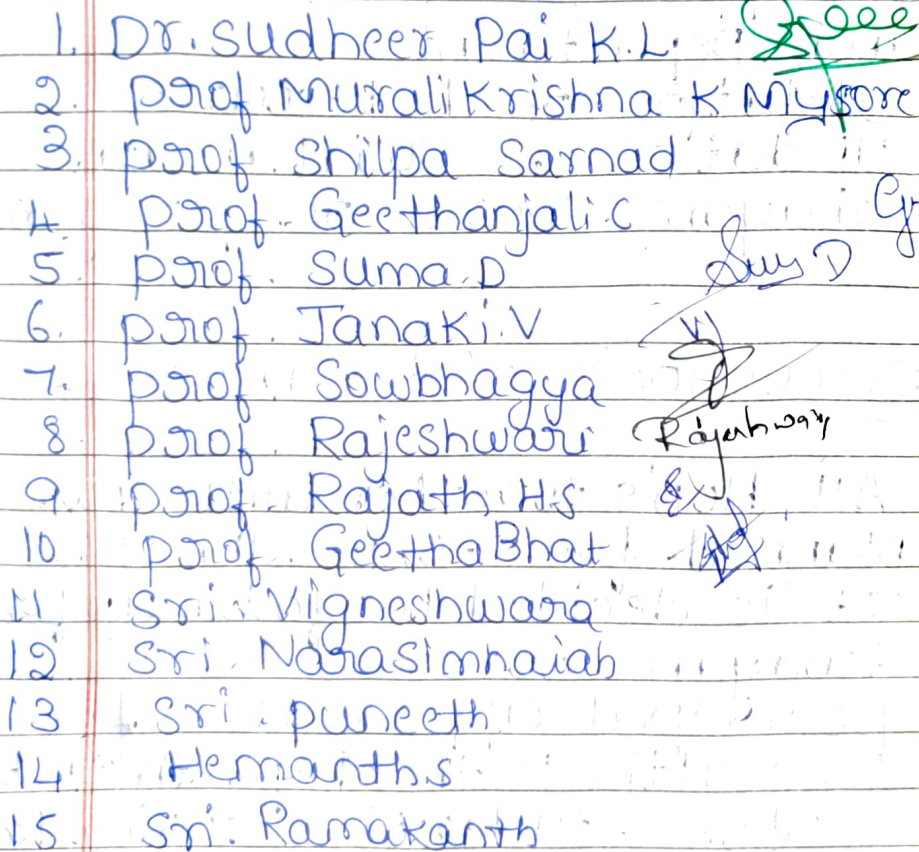 1. Dr. Sudheer Pai K.L.
2. Prof. Murali Krishna K Mysore
3. Prof. Shilpa Sarnad
4. Prof. Geethanjali.C
5. Prof. Suma.D
6. Prof. Janaki.V
7. Prof. Sowbhagya
8. Prof. Rajeshwari Rajeshwari
9. Prof. Rajath H.S
10. Prof. Geetha Bhat
11. Sri. Vigneshwara
12. Sri. Narasimhaiah
13. Sri. Puneeth
14. Hemanth.S
15. Sri. Ramakanth